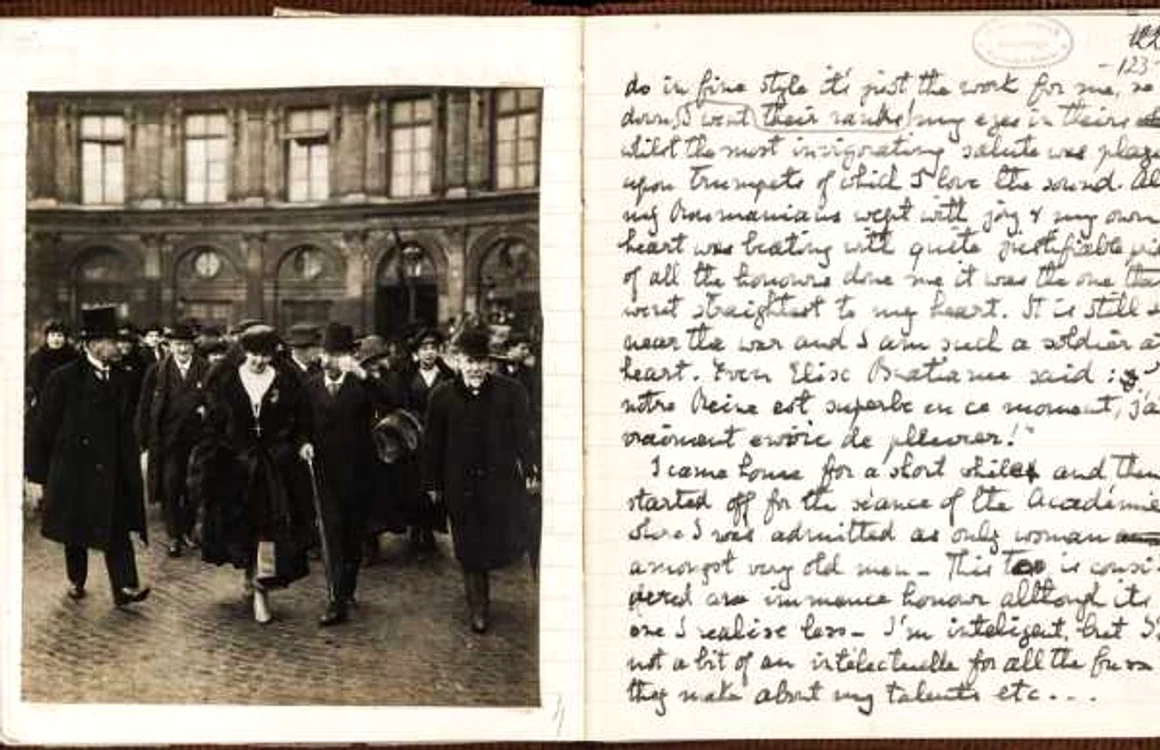 -123-
do in fine style it's just the work for me, so
down I went their ranks my eyes in theirs
whilst the most invigorating salute was
upon trumpets of which I love the sound. Al
my Roumanians wept with joy & my own
heart was beating with quite justifiable
of all the honours done me it was the one
went straightest to my heart. It is still
near the war and I am such a soldier at
heart. Even Elise Bratianu said :
notre Reine est superbe en ce moment, j'ai
vraiment envie de pleurer!"
I came home for a short while and then
started off for the séance of the Académie
where I was admitted as only woman
amongst very old men - This too is consi-
dered an immence honour although its
one I realise less - I'm inteligent, but I'
not a bit of an intelectuelle for all the fuss
they make about my talents etc...